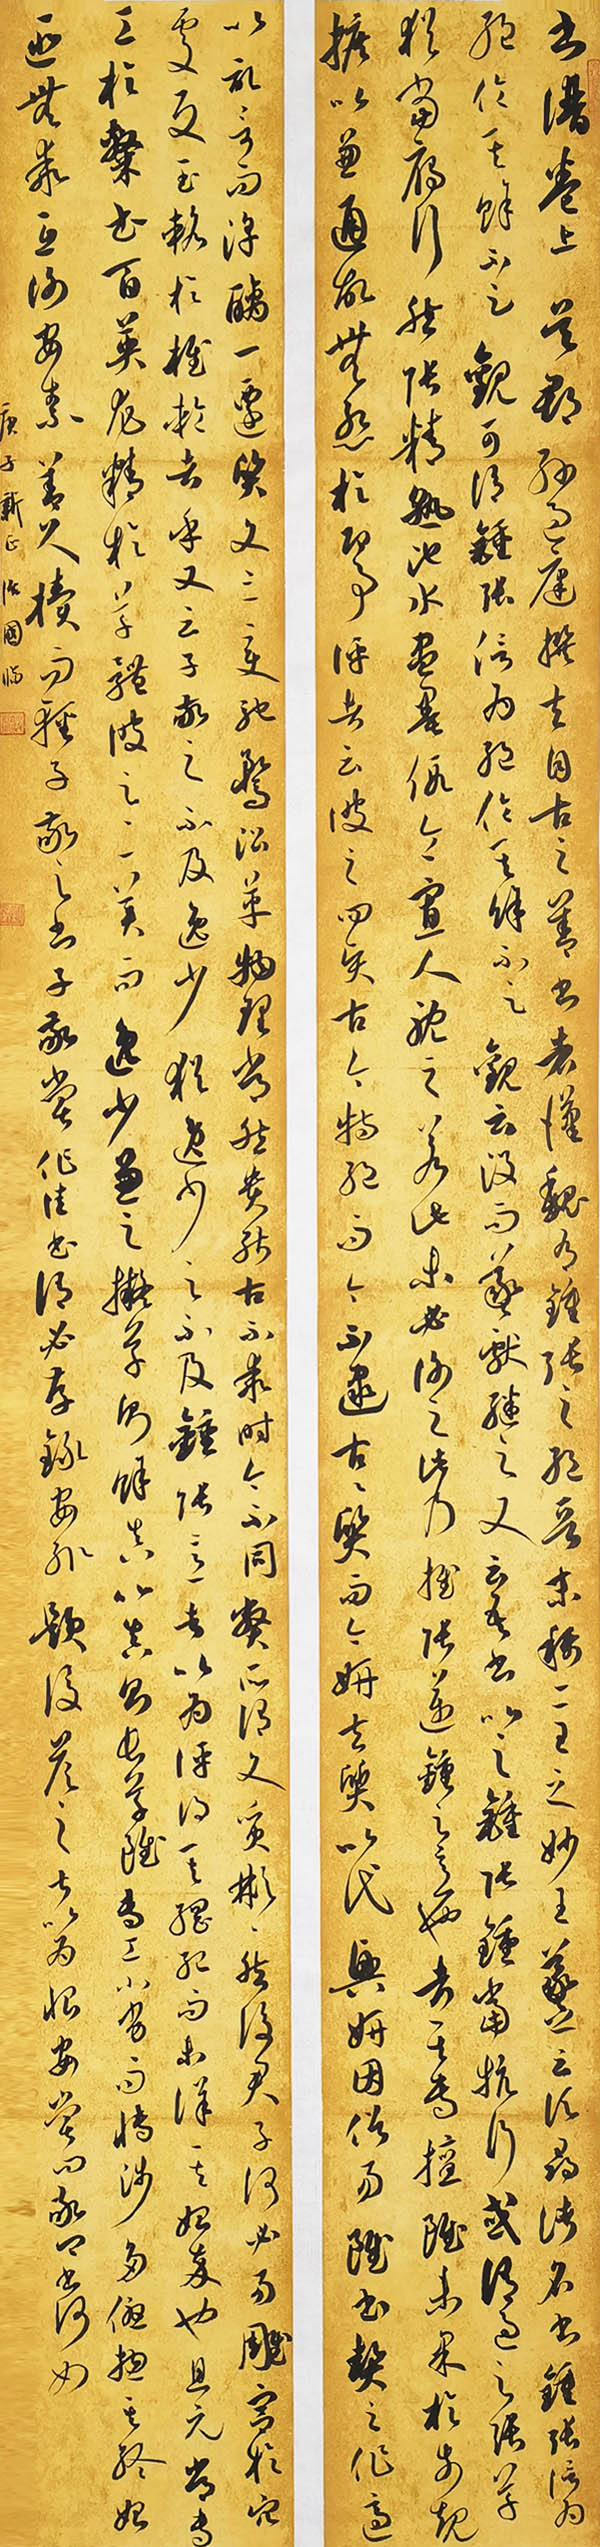 書譜卷上 吳郡孫過庭撰夫自古之善書者漢魏有鍾張之絕晉末稱二王之妙王羲之云頃尋諸名書鍾張信為
絕倫其餘不足觀可謂鍾張信為絕倫其餘不足觀云沒而羲獻繼之又云吾書比之鍾張鍾當抗行或謂過之張草
猶當雁行然張精熟池水盡墨假令寡人耽之若此未必謝之此乃推張邁鍾之意也考其專擅雖未果於前規
摭以兼通故無慚於即事評者云彼之四賢古今特絕而今不逮古古質而今妍夫質以代興妍因俗易雖書契之作適
以記言而淳醨一遷質文三變馳騖沿革物理常然貴能古不乖時今不同弊所謂文質彬彬然後君子何必易雕宮於穴
處反玉輅於椎輪者乎又云子敬之不及逸少猶逸少之不及鍾張意者以為評得其綱紀而未詳其始卒也且元常專
工於隸書百英尤精於草體彼之二美而逸少兼之擬草則餘真比真則長草雖專工小劣而博涉多優總其終始
匪無乖互謝安素善尺牘而輕子敬之書子敬嘗作佳書謂必存錄安輒題後答之甚以為恨安嘗問敬卿書何如
庚子新正治國臨